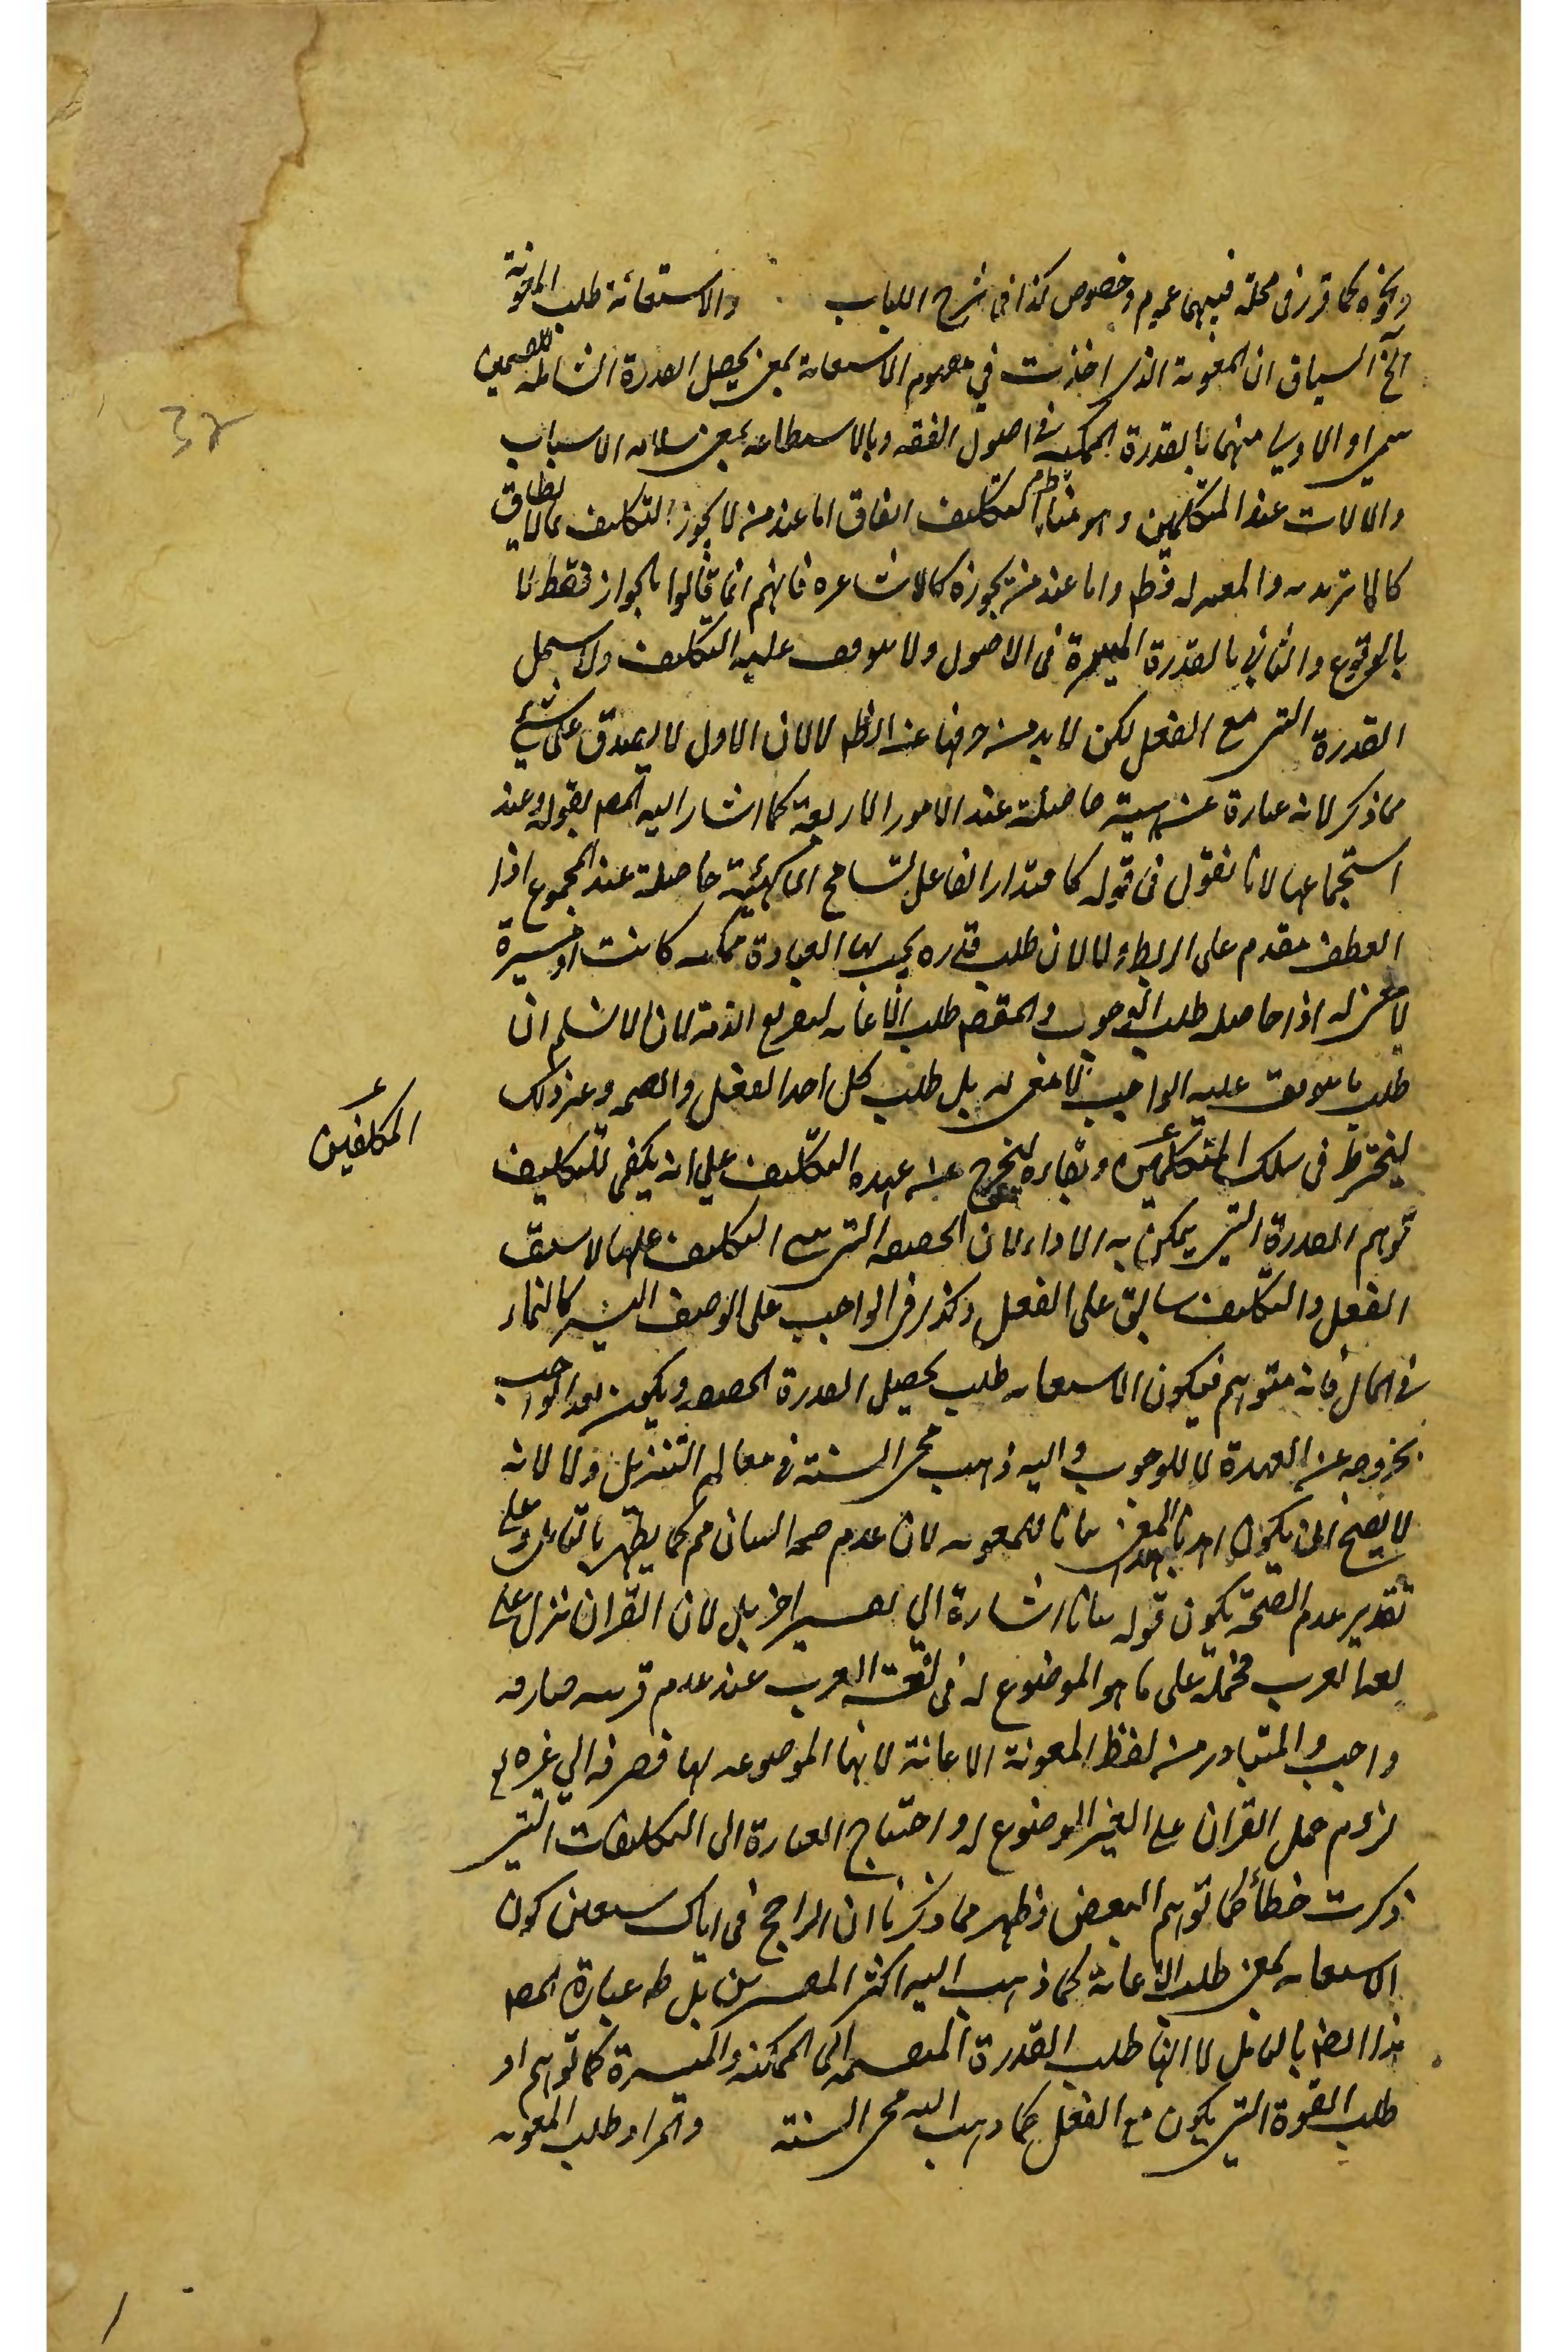 ونحوه كما قرر فى محله فبينهما عموم وخصوص كذا فى شرح اللباب والاستعانة طلب المعونة
الخ السياق ان المعونة الذى اخذت في مفهوم الاستعانة بمعنى تحصيل القدرة الشاملة للقسمين
سمى والاولى منهما بالقدرة الممكنه فى اصول الفقه وبالاستطاعه بمعنى سلامه الاسباب
والالات عند المتكلمين وهو مناط التكليف اتفاق اما عند من لا يجوز التكليف بما لا يطاق
كالماتريديه والمعتزله فظ واما عند من يجوزه كالاشاعره فانهم انما قالوا بالجواز فقط لا
بالوقوع والثانى بالقدرة الميسرة فى الاصول ولا يتوقف عليه التكليف ولا يشمل
القدرة التى مع الفعل لكن لا بد من صرفها عن الظ لا لان الاول لا يصدق على شئ
مما ذكر لانه عبارة عن هيئة حاصلة عند الامور الاربعة كما اشار اليه المص بقوله وعند
استجماعها لانا نقول فى قوله كاقتدار الفاعل تسامح اى كهيئة حاصلة عند المجموع اذا
العطف مقدم على الربط ولا لان طلب قدره يجب بها العبادة ممكنه كانت او ميسرة
لا معنى له اذا حاصله طلب الوجوب والمقصد طلب الاعانه لتفريغ الذمة لان لا نسلم ان
طلب ما يتوقف عليه الواجب لا معنى له بل طلب كل احد العقل والصحه وغير ذلك
لينخرط فى سلك المتكلمين وبقاره ليخرج عن عهده التكليف على انه يكفى للتكليف
المكلفين
توهم القدرة التى يمكن به الاداء لان الحقيقه التى التكليف عليها لا يسبق
الفعل والتكليف سابق على الفعل وكذر فى الواجب على الوصف اليسر كالنماء
فى المال فانه متوهم فيكون الاستعانه طلب تحصيل القدرة الحقيقه ويكون بعد الواجب
بخروجه عن العهدة لا للوجوب واليه ذهب محى السنة فى معالم التنزيل ولا لانه
لا يصح ان يكون بهذا المعنى بيانا للمعونه لان عدم صحه البيان مم كما يظهر بالتامل وعلى
تقدير عدم الصحة يكون قوله بيانا اشارة الى تفسير اخر بل لان القران نزل على
لغة العرب فحمله على ما هو الموضوع له فى لغة العرب عند عدم قرينه صارفه
واجب والمتبادر من لفظ المعونة الاعانة لانها الموضوعه لها فصرفه الى غيره مع
لزوم حمل القران على الغير الموضوع له واحتياج العبارة الى التكلفات التى
ذكرت خطأ كما توهم البعض وظهر مما ذكرنا ان الراجح فى اياك نستعين كون
الاستعانه بمعنى طلب الاعانة كما ذهب اليه اكثر المفسرين بل ظ عبارة المص
هذا ايضا بالتامل لا انها طلب القدرة المنقسمه الى الممكنه والميسرة كما توهم او
طلب القوة التى يكون مع الفعل كما ذهب اليه محى السنة والمراد طلب المعونه